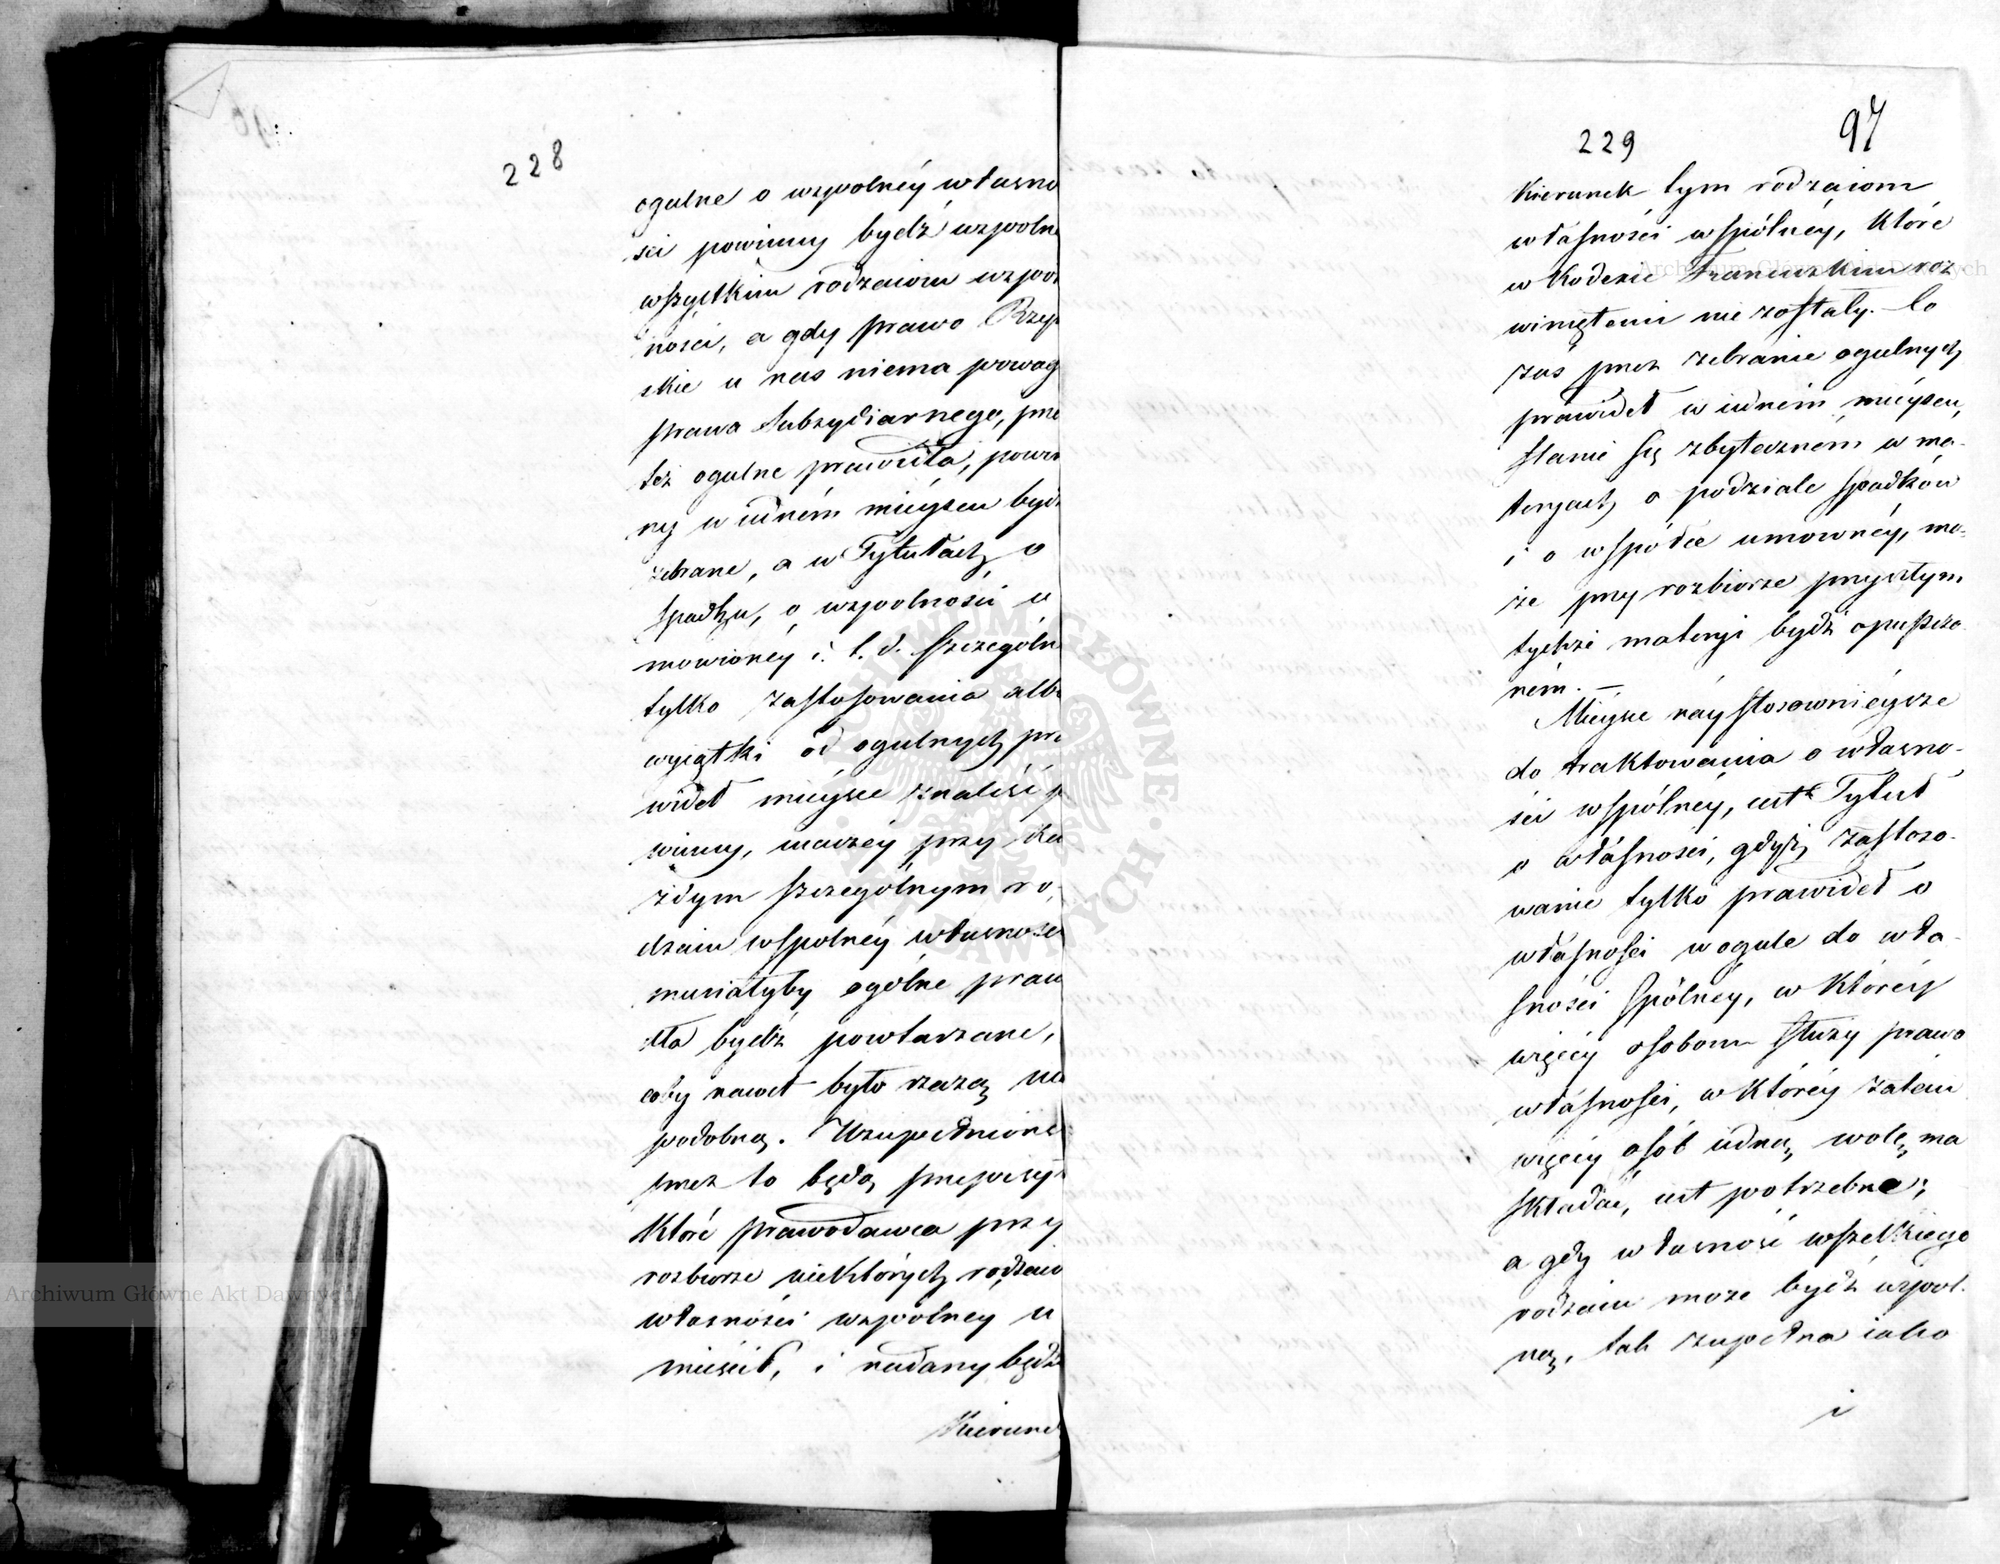 228
ogulne o wzpolnéy własno
sci powinny bydź wzpoln
wszystkim rodzaiom wzpol
ności, a gdy prawo Rzym
skie u nas niema powag
prawa Subsydiarnego, prze
też ogulne prawidła, powin
ny w iedném mieyscu bydź
zebrane, a w Tytułach o
Spadku, o wzpolności u
mowionéy i. t. d. Szczególn
tylko zastosowania albo
wyiątki od ogulnych pra
wideł mieysce znaleść p
winny, inaczéy przy ka
żdym szczególnym ro
dzaiu wspolnéy własnosci
musiałyby ogólne prawi
dła bydź powtarzane,
coby nawet było rzeczą nie
podobną. Uzupełnione
przez to będą przepisy
któré prawodawca przy
rozbiorze niektórych rodzaio
własności wzpólney u
mieścił, i nadany będzi
Kierunek
229
97
Kierunek tym rodzaiom
własności wspólnéy, któré
w Kodexie Francuzkim roz
winiętemi nie zostały. Co
zaś przez zebranie ogulnych
prawideł w iedném mieyscu,
stanie się zbyteczném w ma-
teryach o podziale spadków
i o wspólce umownéy, mo-
że przy rozbiorze przyszłym
tychże materyi bydź opuszczo
ném. —
Mieysce náystosownieysze
do traktowania o własno-
ści wspólney, iest Tytuł
o własności, gdyż zastoso-
wanie tylko prawideł o
własności wogule do wła-
sności spólnéy, w któréy
więcéy osobom służy prawo
własności, w któréy zatem
więcéy osób iedną wolę ma
składać, iest potrzebne;
a gdy własność wszelkiego
rodzaiu może bydź wzpol-
ną, tak zupełna iako
i
Archiwum Główne Akt Dawnych
Archiwum Główne Akt Dawnych
ARCHIWUM GŁÓWNE AKT DAWNYCH